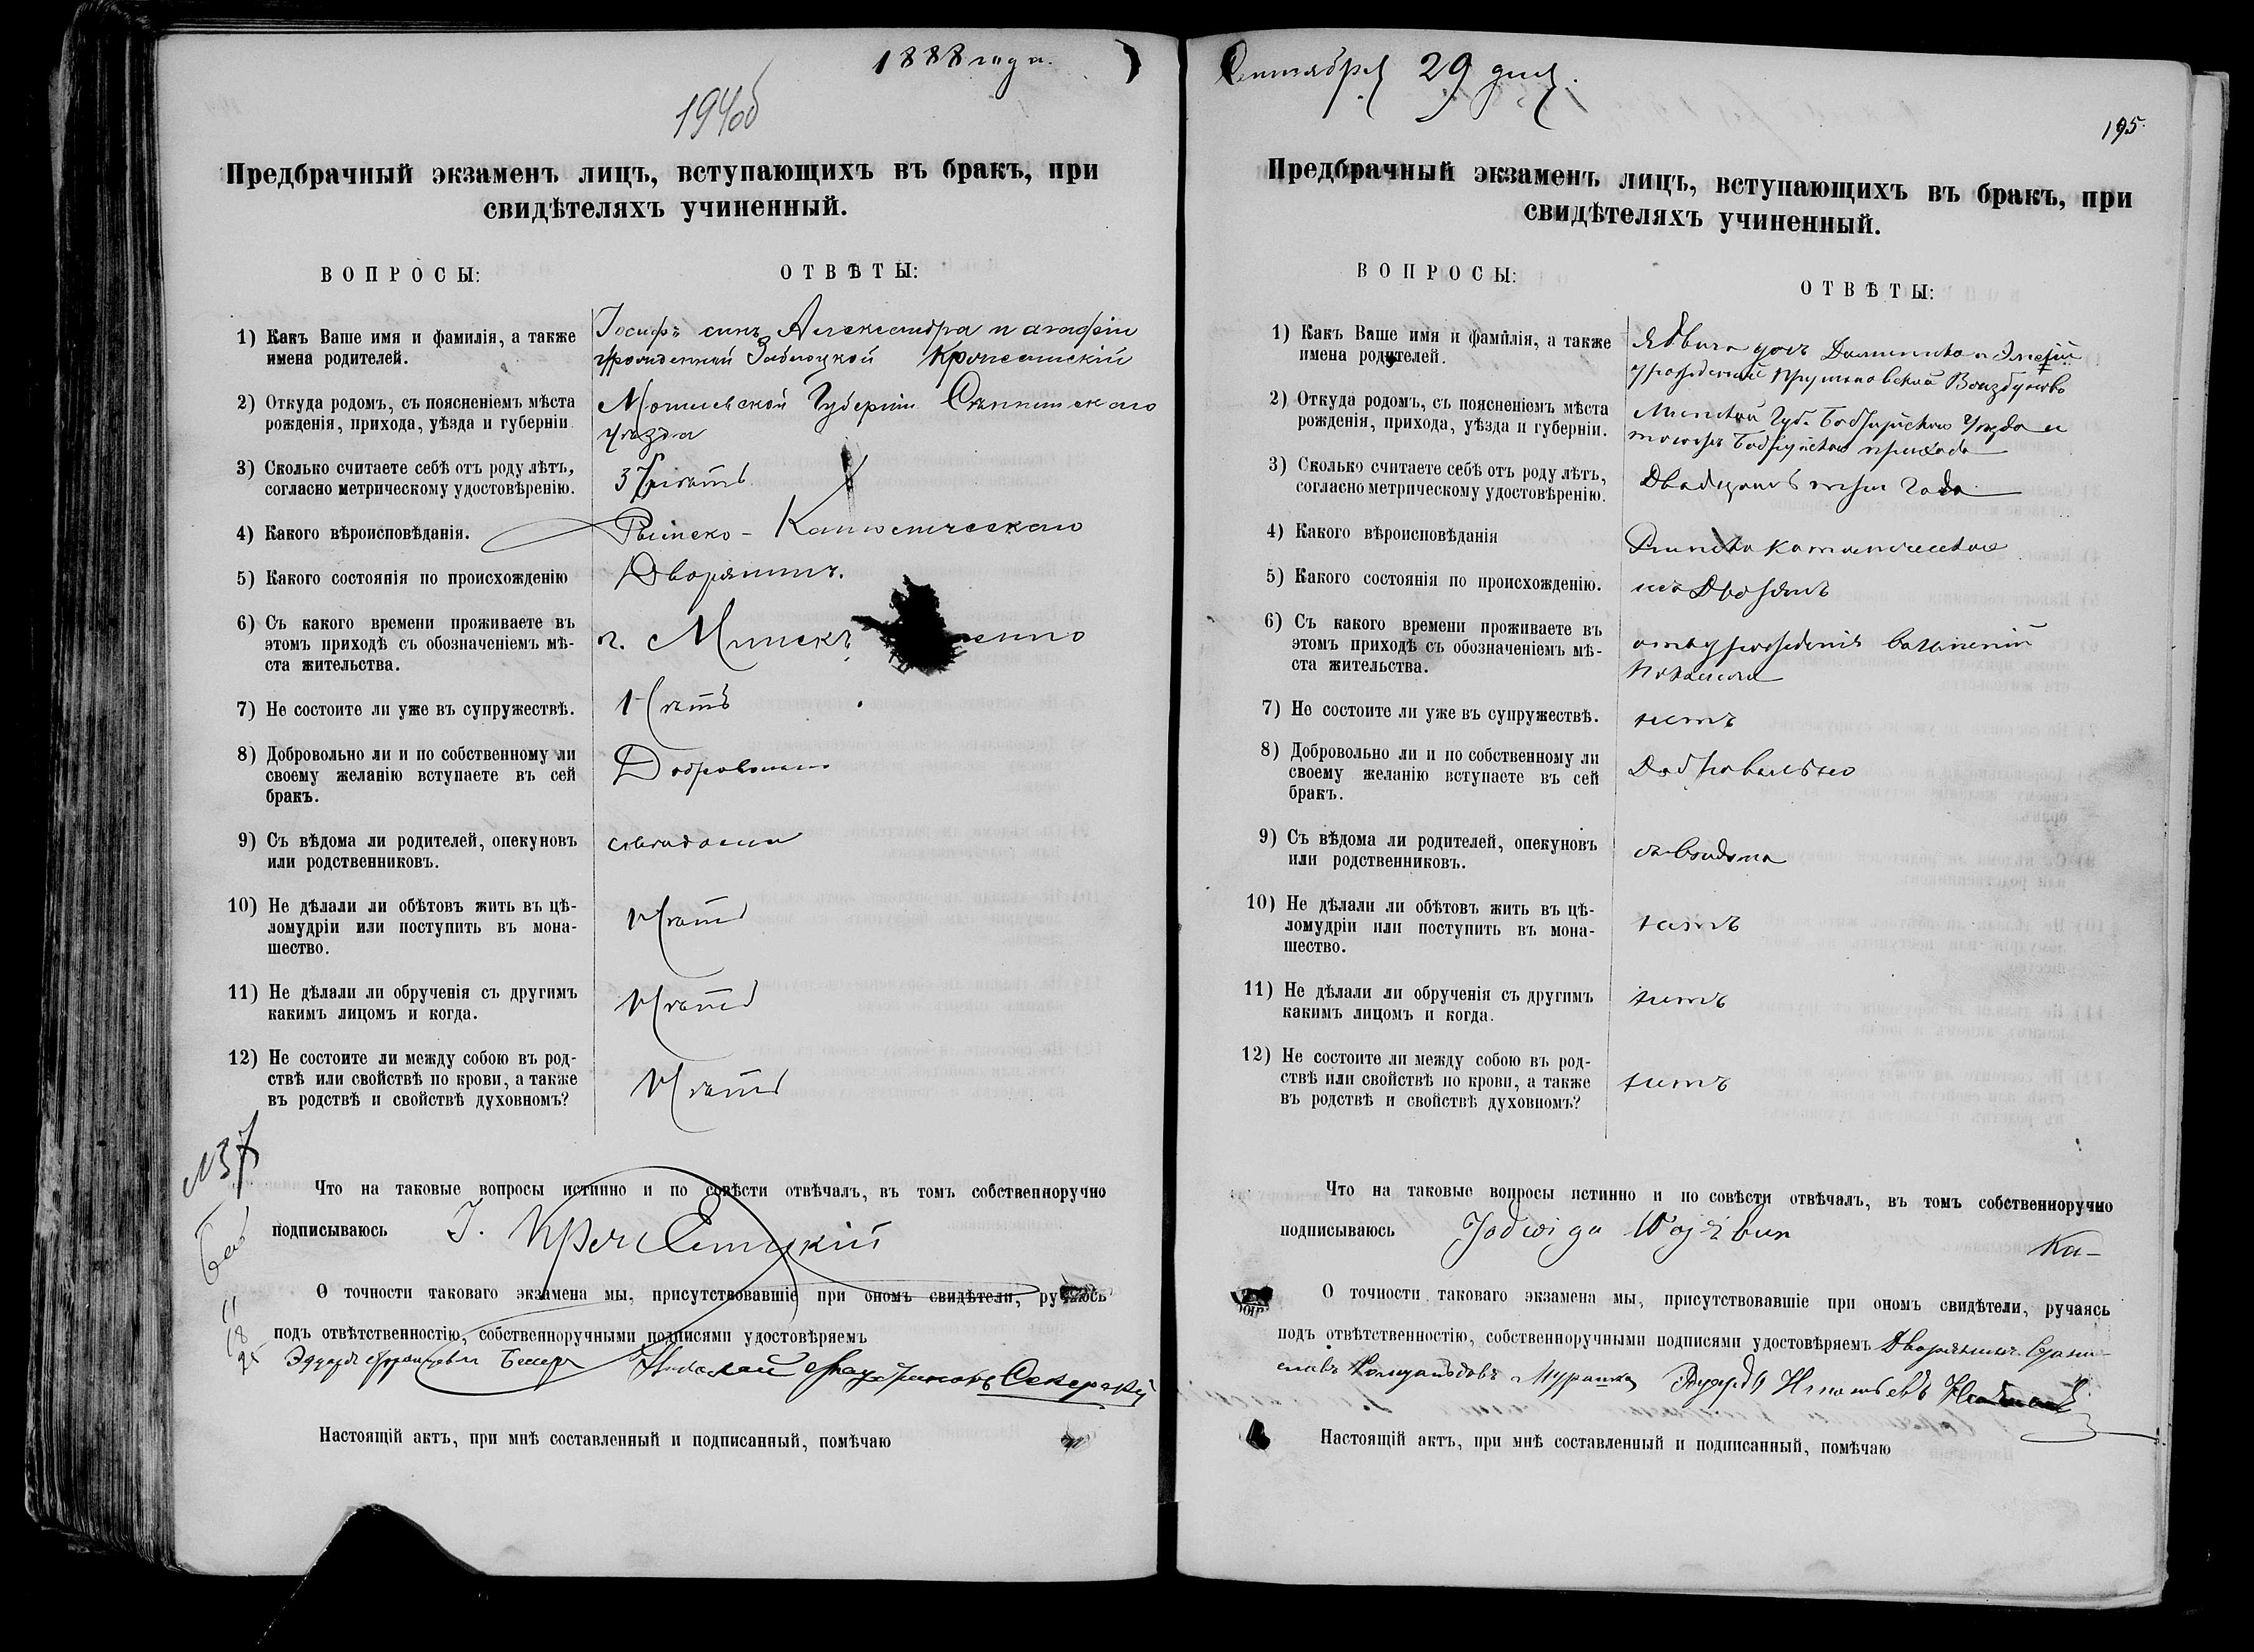 1888 года.
194об
Предбрачный экзаменъ лицъ, вступающихъ въ бракъ, при
свидѣтеляхъ учиненный.
ВОПРОСЫ:
ОТВѢТЫ:
1) Какъ Ваше имя и фамилія, а также
имена родителей.
Іосифъ сынъ Александра и Агафіи
урожденной Заблоцкой
2) Откуда родомъ, съ поясненіемъ мѣста
рожденія, прихода, уѣзда и губерніи.
Могилевской Губерніи Сѣннинскаго
уѣзда
3) Сколько считаете себѣ отъ роду лѣтъ,
согласно метрическому удостовѣренію.
37 лѣтъ
4) Какого вѣроисповѣданія.
Римско-Католическаго
5) Какого состоянія по происхожденію
Дворянинъ.
6) Съ какого времени проживаете въ
этомъ приходѣ съ обозначеніемъ мѣ-
ста жительства.
г. Минскъ
7) Не состоите ли уже въ супружествѣ.
Нѣтъ
8) Добровольно ли и по собственному ли
своему желанію вступаете въ сей
бракъ.
Добровольно
9) Съ вѣдома ли родителей, опекуновъ
или родственниковъ.
съ вѣдома
10) Не дѣлали ли обѣтовъ жить въ цѣ-
ломудріи или поступить въ мона-
шество.
Нѣтъ
11) Не дѣлали ли обрученія съ другимъ
какимъ лицомъ и когда.
Нѣтъ
12) Не состоите ли между собою въ род-
ствѣ или свойствѣ по крови, а также
въ родствѣ и свойствѣ духовномъ?
Нѣтъ
№37
Что на таковые вопросы истинно и по совѣсти отвѣчалъ, въ томъ собственноручно
подписываюсь І.
О точности таковаго экзамена мы, присутствовавшіе при ономъ свидѣтели, ручаясь
подъ отвѣтственностію, собственноручными подписями удостовѣряемъ
Эдуардъ
Настоящій актъ, при мнѣ составленный и подписанный, помѣчаю
Сентября 29 дня.
195.
Предбрачный экзаменъ лицъ, вступающихъ въ бракъ, при
свидѣтеляхъ учиненный.
ВОПРОСЫ:
ОТВѢТЫ:
1) Какъ Ваше имя и фамилія, а также
имена родителей.
Ядвига дочь Доминика и
урожденной
2) Откуда родомъ, съ поясненіемъ мѣста
рожденія, прихода, уѣзда и губерніи.
Минской Губ. Бобруйскаго уѣзда и
тогожъ Бобруйскаго прихода
3) Сколько считаете себѣ отъ роду лѣтъ,
согласно метрическому удостовѣренію.
Двадцать три года
4) Какого вѣроисповѣданія
Римско Католическаго
5) Какого состоянія по происхожденію.
изъ Дворянъ
6) Съ какого времени проживаете въ
этомъ приходѣ съ обозначеніемъ мѣ-
ста жительства.
отъ урожденія
7) Не состоите ли уже въ супружествѣ.
нетъ
8) Добровольно ли и по собственному ли
своему желанію вступаете въ сей
бракъ.
Добровольно
9) Съ вѣдома ли родителей, опекуновъ
или родственниковъ.
10) Не дѣлали ли обѣтовъ жить въ цѣ-
ломудріи или поступить въ мона-
шество.
нетъ
11) Не дѣлали ли обрученія съ другимъ
какимъ лицомъ и когда.
нетъ
12) Не состоите ли между собою въ род-
ствѣ или свойствѣ по крови, а также
въ родствѣ и свойствѣ духовномъ?
нетъ
Что на таковые вопросы истинно и по совѣсти отвѣчалъ, въ томъ собственноручно
подписываюсь Jadwiga Wojzbun
Ка-
О точности таковаго экзамена мы, присутствовавшіе при ономъ свидѣтели, ручаясь
подъ отвѣтственностію, собственноручными подписями удостовѣряемъ Дворянинъ
Мурашко
Настоящій актъ, при мнѣ составленный и подписанный, помѣчаю